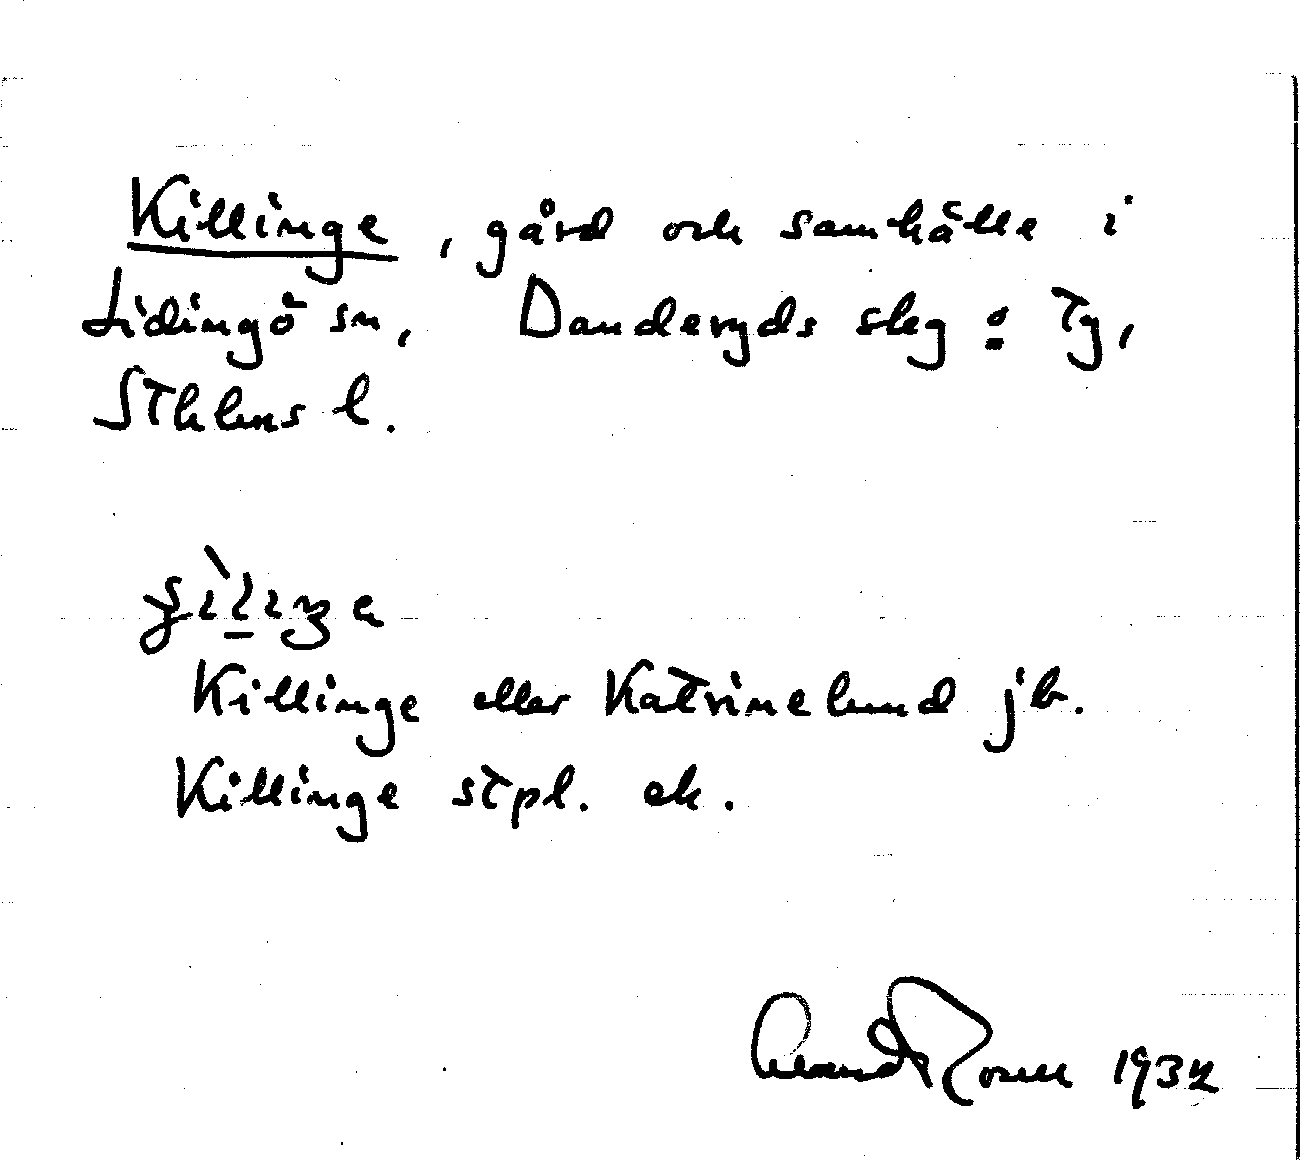 Killinge, gård och samhälle i
Lidingö sn, Danderyds slag o Ty,
Sthlms l.
Killinge eller Katrinelund jb.
Killinge stpl. ek.
1932